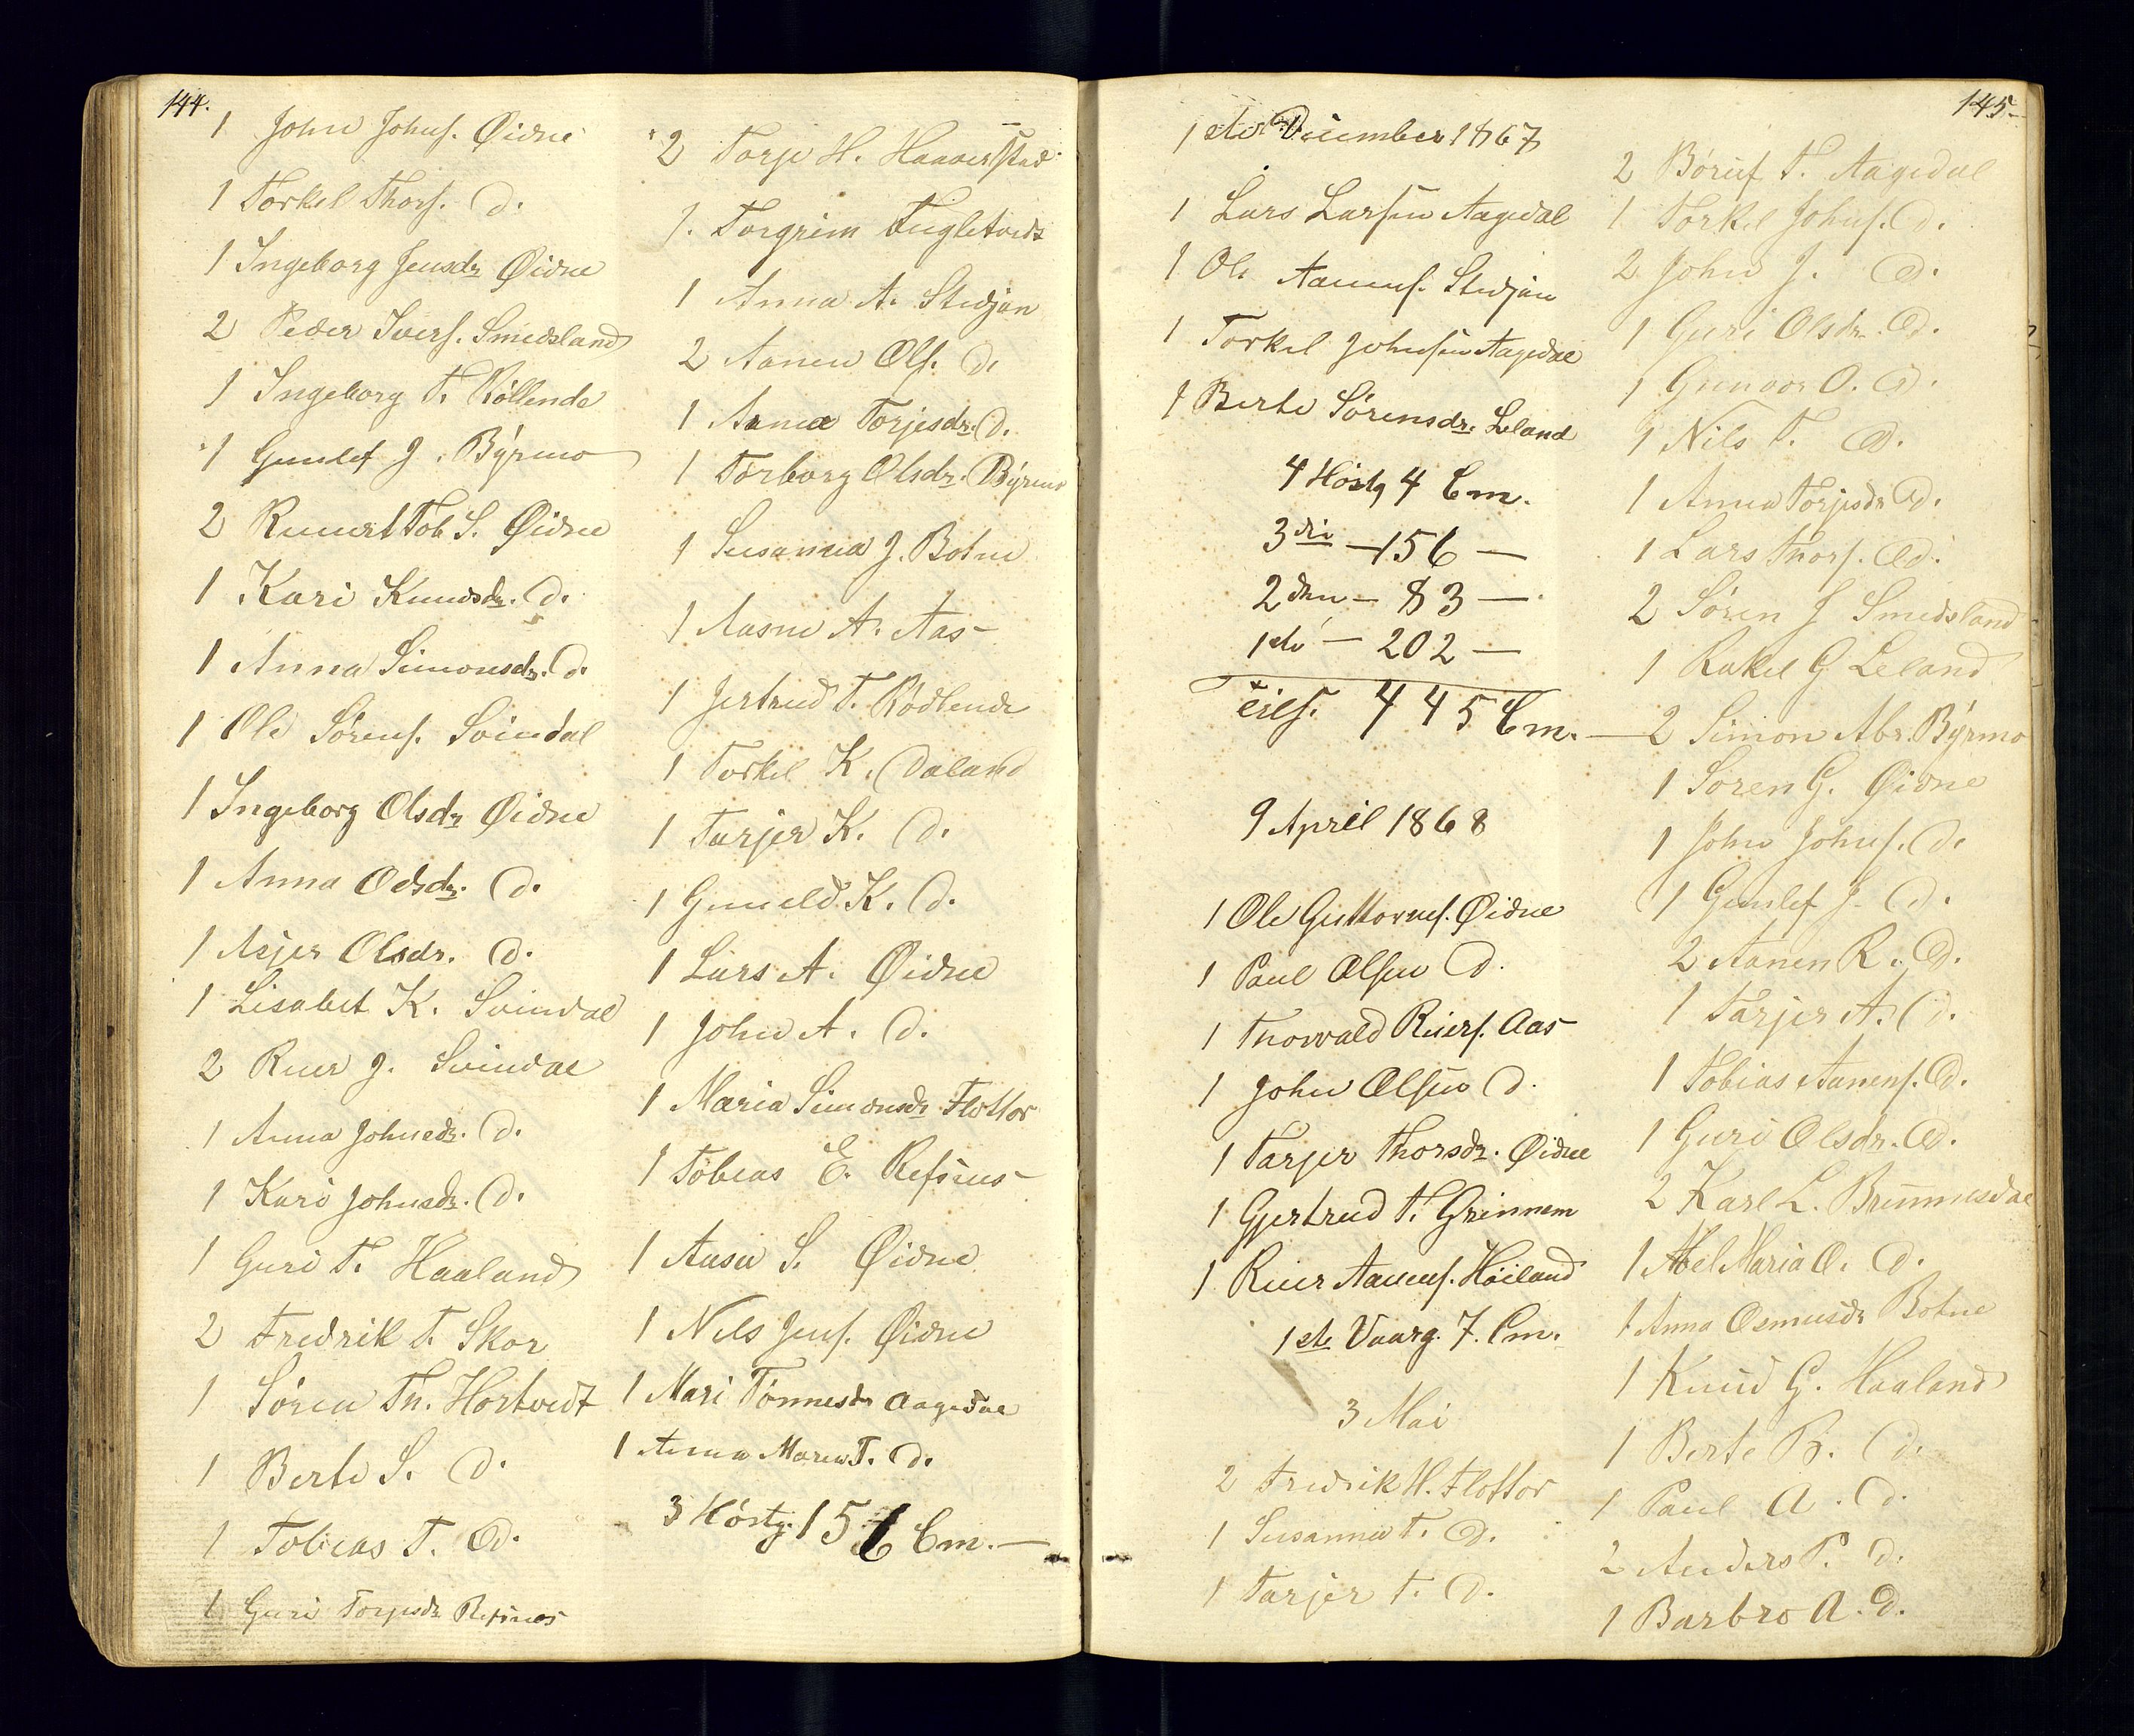 144.
1 John Johnf. Øidne
1 Torkel Thorf. d.
1 Ingeborg Jensdr Øidne
2 Peder Iverf. Smedsland
1 Ingeborg T. Röllende
1 Gunlef J. Bÿrmo
2 Tob S. Øidne
1 Kari Knudsdr. d.
1 Anna Simonsdr. d.
1 Ole Sörenf. Svindal
1 Ingeborg Olsdr Øidne
1 Anna Olsdr. d.
1 Asjer Olsdr. d.
1 Lisabet K. Svindal
2 Reier J. Svindal
1 Anna Johnsdr. d.
1 Kari Johnsdr. d.
1 Guri T. Haaland
2 Fredrik T. Skor
1 Sören Th. Hortvedt
1 Berte S. d.
1 Tobias T. d.
1 Guri Torjesdr Refsnes
2 Torje H. Haaverstad
1. Torgrim Fugletvedt
1 Anna A. Stedjan
2 Aanen Olf. d.
1 Anna Torjesdr. d.
1 Torborg Olsdr. Bÿrmo
1 Susanna J. Botne
1 Aasne A. Aas
1 Jertrud T. Rödlende
1 Torkel K. Daland
1 Tarjer K. d.
1 Guneld K. d.
1 Lars A. Øidne
1 John A. d.
1 Maria Simonsdr Flottor
1 Tobias E. Refsnes
1 Aasne S. Øidne
1 Nils Jenf. Øidne
1 Mari Tönnesdr Aagedal
1 Anna Maren T. d.
3 Höstg. 156 Cm.
145
1ste December 1867
1 Lars Larsen Aagedal
1 Ole Aanenf. Stedjan
1 Torkel Johnsen Aagedal
1 Berte Sörensdr. Leland
4 Höstg 4 Cm.
3die — 156 —
2den — 83 —
1ste — 202 —
445 Cm.
9 April 1868
1 Ole Guttormf. Øidne
1 Paul Olsen d.
1 Thorvald Reierf. Aas
1 John Olsen d.
1 Tarjer Thorsdr. Øidne
1 Gjertrud T. Grinnem
1 Reier Aanenf. Höiland
1ste Vaarg. 7. Cm.
3 Mai
2 Fredrik H. Flottor
1 Susanna T. d.
1 Tarjer F. d.
2 Böruf T. Aagedal
1 Torkel Johnf. d.
2 John J. d.
1 Guri Olsdr. d.
1 Gunvor O. d.
1 Nils T. d.
1 Anna Torjesdr d.
1 Lars Thorf. d.
2 Sören J Smedsland
1 Rakel G Leland
2 Simon Abr. Bÿrmo
1 Sören G. Øidne
1 John Johnf. d.
1 Gunlef J. d.
2 Aanen R. d.
1 Tarjer A. d.
1 Tobias Aanenf. d.
1 Guri Olsdr. d.
2 Karl L. Brunnesdal
1 Abel Maria O. d.
1 Anna Osmusdr Botne
1 Knud G. Haaland
1 Berte B. d.
1 Paul A. d.
2 Anders P. d.
1 Barbro A. d.